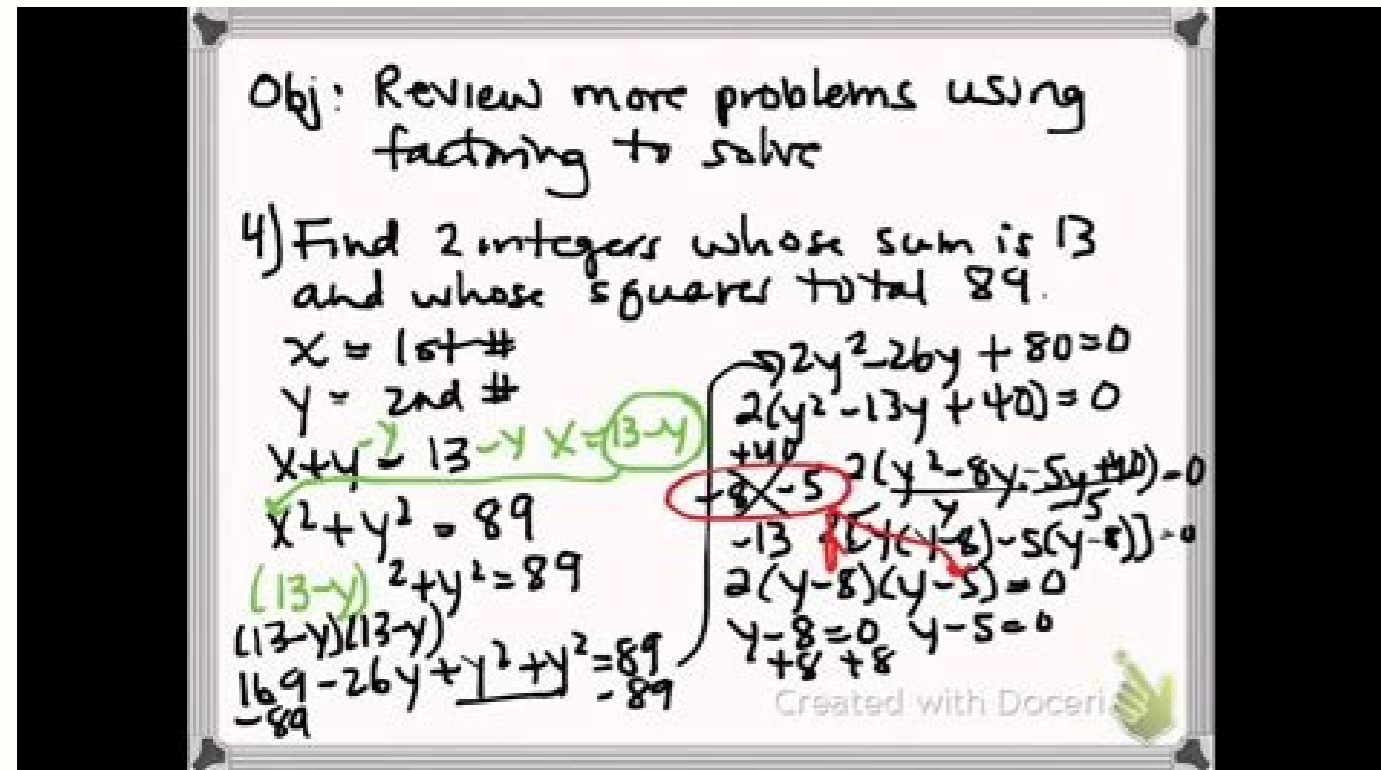 Obj: Review more problems using
factoring to solve
4) Find 2 integers whose sum is 13
and whose squares total 89.
x = 1st #
y = 2nd #
x+y = 13 -y x = 13-y
-y
x² + y² = 89
(13-y)² + y² = 89
(13-y)(13-y)
169 - 26y + y² + y² = 89
-89 -89
2y² - 26y + 80 = 0
2(y² - 13y + 40) = 0
+40
-8 -5
-13
2(y² - 8y - 5y + 40) = 0
y 5
[y(y-8) - 5(y-8)] = 0
2(y-8)(y-5) = 0
y-8=0 y-5=0
+8 +8
Created with Doceri